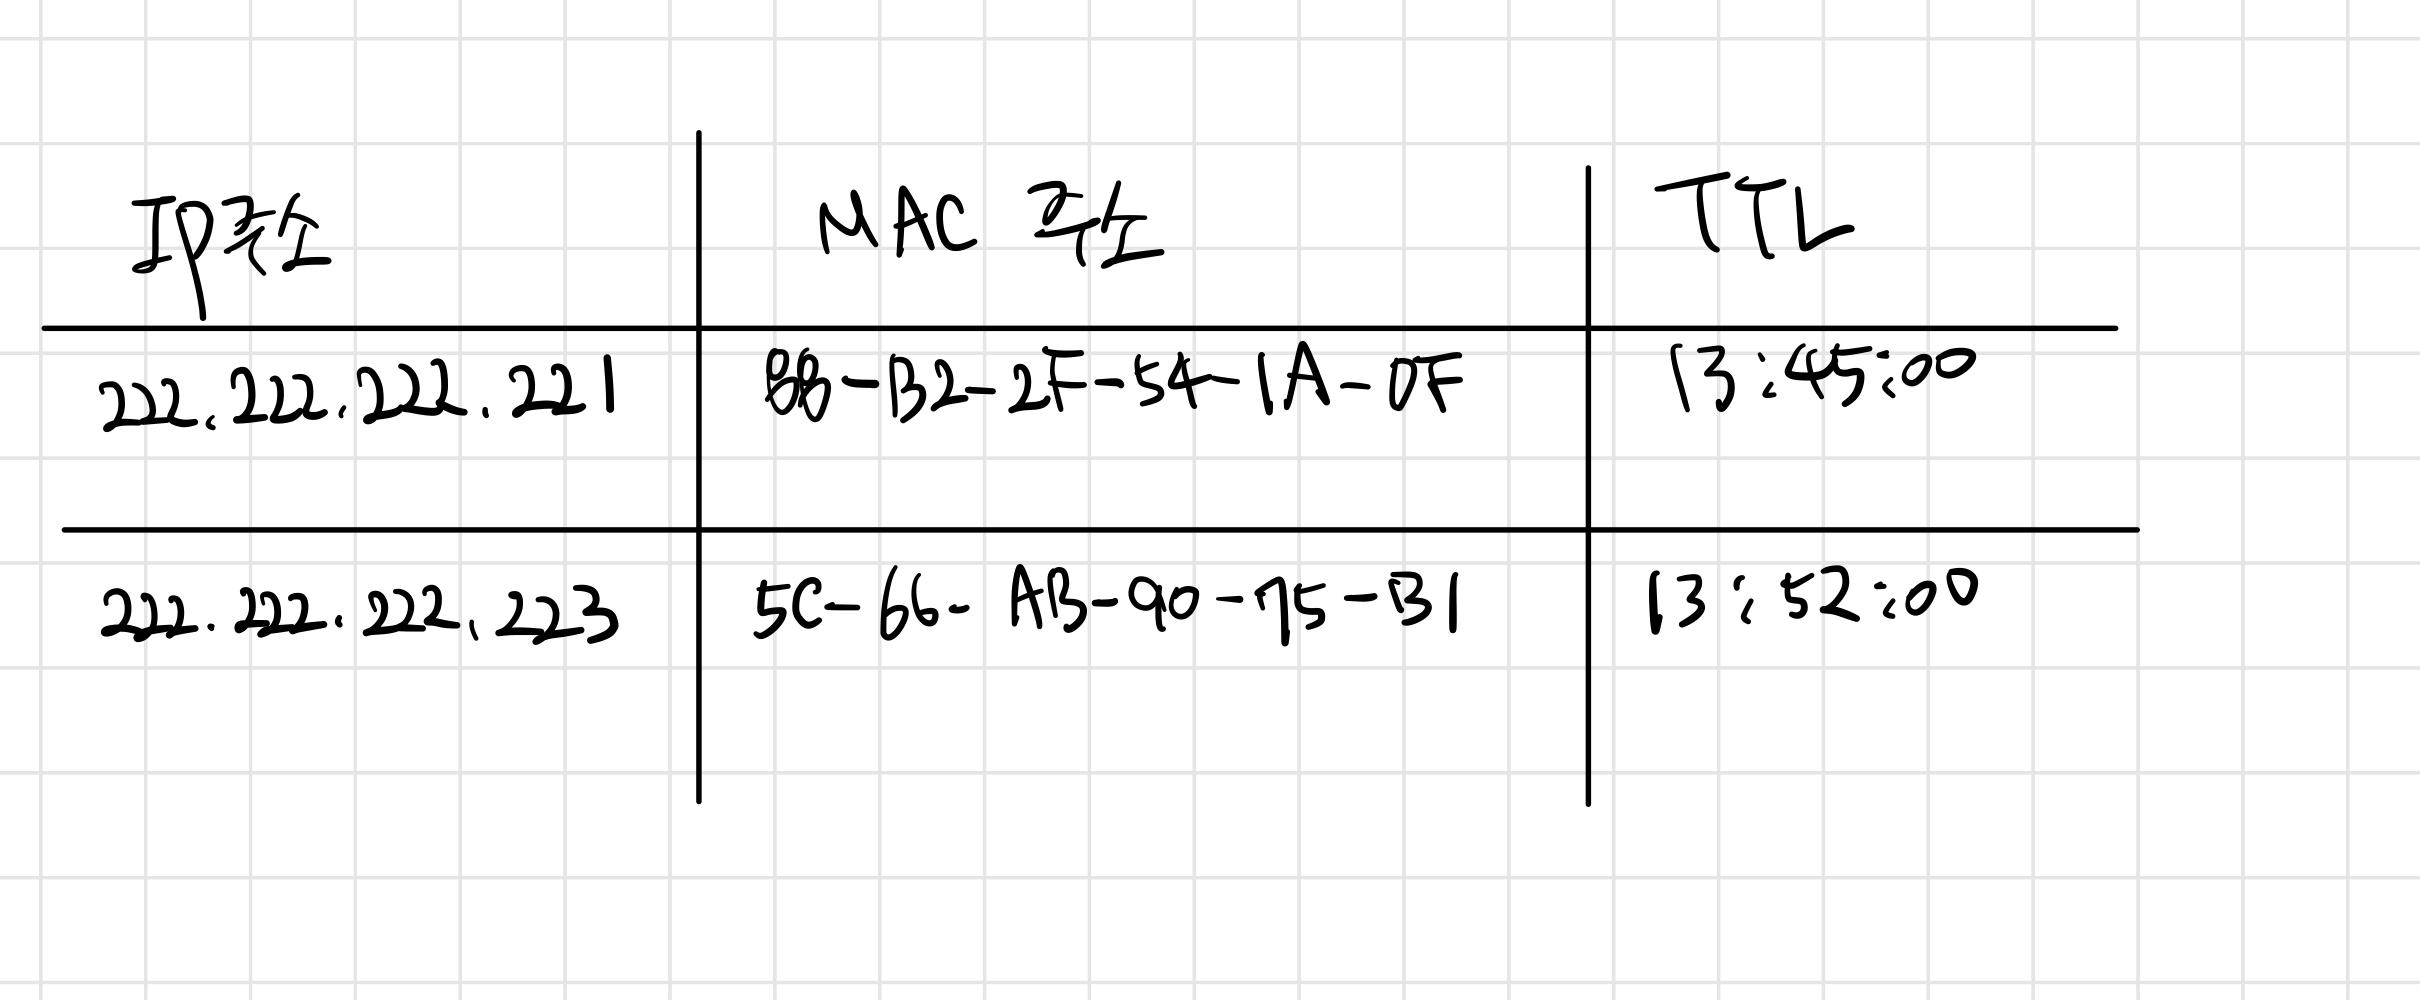 IP주소 MAC 주소 TTL
222.222.222.221 88-B2-2F-54-1A-0F 13:45:00
222.222.222.223 5C-66-AB-90-75-B1 13:52:00